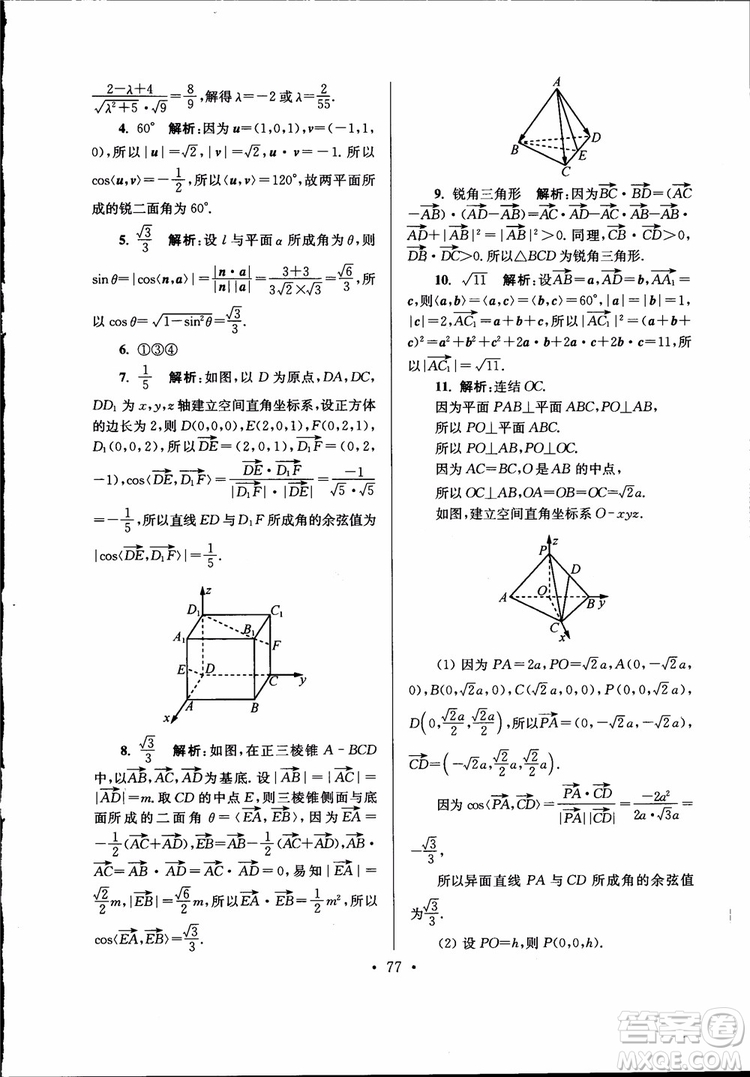 $\frac{2-\lambda+4}{\sqrt{\lambda^2+5}\cdot\sqrt{9}}=\frac{8}{9}$,解得 $\lambda=-2$ 或 $\frac{2}{55}$.
4. 60° 解析:因为 u=(1,0,1),v=(-1,1,
0),所以 |u|=√2,|v|=√2,u·v=-1. 所以
cos⟨u,v⟩=-$\frac{1}{2}$,所以⟨u,v⟩=120°,故两平面所
成的锐二面角为 60°.
5. $\frac{\sqrt{3}}{3}$ 解析:设 l 与平面 α 所成角为 θ,则
sinθ=|cos⟨n,a⟩|=$\left|\frac{n\cdot a}{|n||a|}\right|=\frac{3+3}{3\sqrt{2}\times\sqrt{3}}=\frac{\sqrt{6}}{3}$,所
以 cosθ=$\sqrt{1-\sin^2\theta}=\frac{\sqrt{3}}{3}$.
6. ①③④
7. $\frac{1}{5}$ 解析:如图,以 D 为原点,DA,DC,
DD₁ 为 x,y,z 轴建立空间直角坐标系,设正方体
的边长为 2,则 D(0,0,0),E(2,0,1),F(0,2,1),
D₁(0,0,2),所以$\overrightarrow{DE}$=(2,0,1),$\overrightarrow{D_1F}$=(0,2,
-1),cos⟨$\overrightarrow{DE}$,$\overrightarrow{D_1F}$⟩=$\frac{\overrightarrow{DE}\cdot\overrightarrow{D_1F}}{|\overrightarrow{D_1F}|\cdot|\overrightarrow{DE}|}=\frac{-1}{\sqrt{5}\cdot\sqrt{5}}$=
-$\frac{1}{5}$,所以直线 ED 与 D₁F 所成角的余弦值为
|cos⟨$\overrightarrow{DE}$,$\overrightarrow{D_1F}$⟩|=$\frac{1}{5}$.
z
D₁ C₁
A₁ B₁
F
E D C y
A B
x
8. $\frac{\sqrt{3}}{3}$ 解析:如图,在正三棱锥 A-BCD
中,以$\overrightarrow{AB}$,$\overrightarrow{AC}$,$\overrightarrow{AD}$为基底. 设|$\overrightarrow{AB}$|=|$\overrightarrow{AC}$|=
|$\overrightarrow{AD}$|=m. 取 CD 的中点 E,则三棱锥侧面与底
面所成的二面角 θ=⟨$\overrightarrow{EA}$,$\overrightarrow{EB}$⟩,因为$\overrightarrow{EA}$=
-$\frac{1}{2}$($\overrightarrow{AC}$+$\overrightarrow{AD}$),$\overrightarrow{EB}$=$\overrightarrow{AB}$-$\frac{1}{2}$($\overrightarrow{AC}$+$\overrightarrow{AD}$),$\overrightarrow{AB}$·
$\overrightarrow{AC}$=$\overrightarrow{AB}$·$\overrightarrow{AD}$=$\overrightarrow{AC}$·$\overrightarrow{AD}$=0,易知|$\overrightarrow{EA}$|=
$\frac{\sqrt{2}}{2}$m,|$\overrightarrow{EB}$|=$\frac{\sqrt{6}}{2}$m,所以$\overrightarrow{EA}$·$\overrightarrow{EB}$=$\frac{1}{2}$m²,所以
cos⟨$\overrightarrow{EA}$,$\overrightarrow{EB}$⟩=$\frac{\sqrt{3}}{3}$.
A
B D
E
C
9. 锐角三角形 解析:因为$\overrightarrow{BC}$·$\overrightarrow{BD}$=($\overrightarrow{AC}$
-$\overrightarrow{AB}$)·($\overrightarrow{AD}$-$\overrightarrow{AB}$)=$\overrightarrow{AC}$·$\overrightarrow{AD}$-$\overrightarrow{AC}$·$\overrightarrow{AB}$-$\overrightarrow{AB}$·
$\overrightarrow{AD}$+|$\overrightarrow{AB}$|²=|$\overrightarrow{AB}$|²>0. 同理,$\overrightarrow{CB}$·$\overrightarrow{CD}$>0,
$\overrightarrow{DB}$·$\overrightarrow{DC}$>0. 所以△BCD 为锐角三角形.
10. √11 解析:设$\overrightarrow{AB}$=a,$\overrightarrow{AD}$=b,$\overrightarrow{AA_1}$=
c,则⟨a,b⟩=⟨a,c⟩=⟨b,c⟩=60°,|a|=|b|=1,
|c|=2,$\overrightarrow{AC_1}$=a+b+c,所以|$\overrightarrow{AC_1}$|²=(a+b+
c)²=a²+b²+c²+2a·b+2b·c+2a·c=11,所
以|$\overrightarrow{AC_1}$|=√11.
11. 解析:连结 OC.
因为平面 PAB⊥平面 ABC,PO⊥AB,
所以 PO⊥平面 ABC.
所以 PO⊥AB,PO⊥OC.
因为 AC=BC,O 是 AB 的中点,
所以 OC⊥AB,OA=OB=OC=√2a.
如图,建立空间直角坐标系 O-xyz.
z
P
D
A O B y
C
x
(1) 因为 PA=2a,PO=√2a,A(0,-√2a,
0),B(0,√2a,0),C(√2a,0,0),P(0,0,√2a),
D$\left(0,\frac{\sqrt{2}a}{2},\frac{\sqrt{2}a}{2}\right)$,所以$\overrightarrow{PA}$=(0,-√2a,-√2a),
$\overrightarrow{CD}$=$\left(-\sqrt{2}a,\frac{\sqrt{2}}{2}a,\frac{\sqrt{2}}{2}a\right)$.
因为 cos⟨$\overrightarrow{PA}$,$\overrightarrow{CD}$⟩=$\frac{\overrightarrow{PA}\cdot\overrightarrow{CD}}{|\overrightarrow{PA}||\overrightarrow{CD}|}=\frac{-2a^2}{2a\cdot\sqrt{3}a}$=
-$\frac{\sqrt{3}}{3}$,
所以异面直线 PA 与 CD 所成角的余弦值
为$\frac{\sqrt{3}}{3}$.
(2) 设 PO=h,则 P(0,0,h).
· 77 ·
答案卷
MXQE.COM